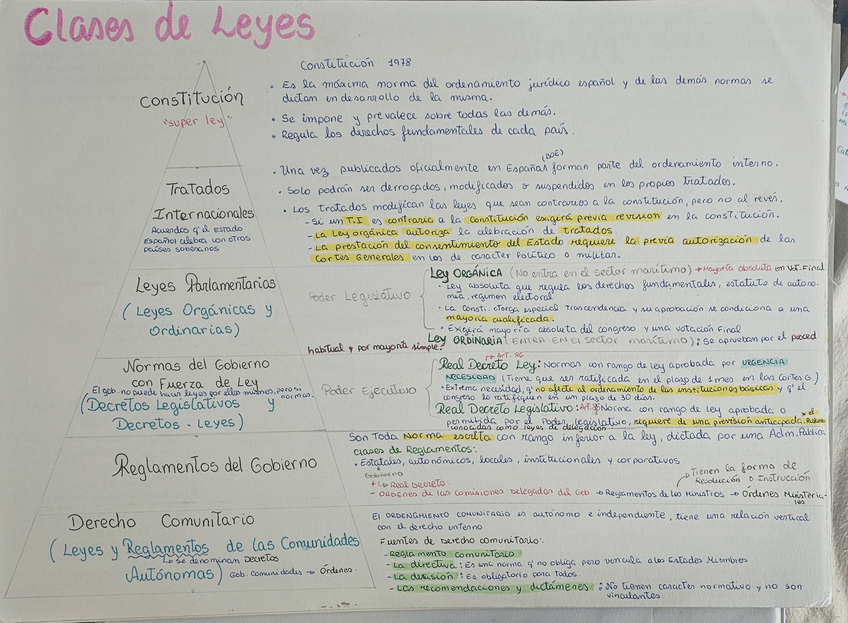 Clases de Leyes
Constitución
"super ley"
Constitución 1978
• Es la máxima norma del ordenamiento jurídico español y de las demás normas se
dictan en desarrollo de la misma.
• Se impone y prevalece sobre todas las demás.
• Regula los derechos fundamentales de cada país.
Tratados
Internacionales
Acuerdos q' el estado
español celebra con otros
países soberanos
(BOE)
• Una vez publicados oficialmente en España forman parte del ordenamiento interno.
• Solo podrán ser derrogados, modificados o suspendidos en los propios tratados.
• Los tratados modifican las leyes que sean contrarios a la constitución, pero no al revés.
- Si un T.I es contrario a la constitución exigirá previa revisión en la constitución.
- La Ley orgánica autoriza la celebración de tratados
- La prestación del consentimiento del Estado requiere la previa autorización de las
Cortes Generales en los de carácter político o militar.
Leyes Parlamentarias
(Leyes Orgánicas y
Ordinarias)
Poder Legislativo
Ley ORGÁNICA (No entra en el sector marítimo) → Mayoría absoluta en Vot. Final
• Ley absoluta que regula los derechos fundamentales, estatuto de autono-
mía, regimen electoral
• La consti. otorga especial trascendencia y su aprobación se condiciona a una
mayoría cualificada.
• Exigirá mayoría absoluta del congreso y una votación Final
Ley ORDINARIA (ENTRA EN EL SECTOR MARÍTIMO): Se aprueban por el proced
habitual y por mayoría simple.
Normas del Gobierno
con Fuerza de Ley
El gob. no puede hacer leyes por ellos mismos, pero si
normas.
(Decretos Legislativos y
Decretos - Leyes)
Poder Ejecutivo
→ Art. 86
Real Decreto Ley: Normas con rango de ley aprobada por URGENCIA
NECESIDAD (Tiene que ser ratificada en el plazo de 1 mes en las Cortes G.)
• Extrema necesidad, q' no afecte al ordenamiento de las instituciones básicas y q' el
congreso lo ratifiquen en un plazo de 30 días.
Real Decreto Legislativo: Norma con rango de ley aprobada o
permitida por el Poder Legislativo, requiere de una previsión anticipada.
conocidas como leyes de delegación
Reglamentos del Gobierno
Son toda norma escrita con rango inferior a la ley, dictada por una Adm. Pública
clases de Reglamentos:
• Estatales, autonómicos, locales, institucionales y corporativos
Gobierno
↳ Real Decreto.
→ Tienen la forma de
Resolución o Instrucción
- ORDENES de las comisiones delegadas del Gob → Reglamentos de los Ministros → Órdenes Ministeria-
les
Derecho Comunitario
(Leyes y Reglamentos de las Comunidades
↳ se denominan Decretos
Autónomas) Gob. Comunidades → Órdenes.
El ORDENAMIENTO COMUNITARIO es autónomo e independiente, tiene una relación vertical
con el derecho interno
Fuentes de Derecho comunitario:
- Reglamento comunitario
- La directiva: Es una norma q' no obliga pero vincula a los Estados Miembros
- La decisión: Es obligatorio para todos.
- Las recomendaciones y dictámenes: No tienen carácter normativo y no son
vinculantes